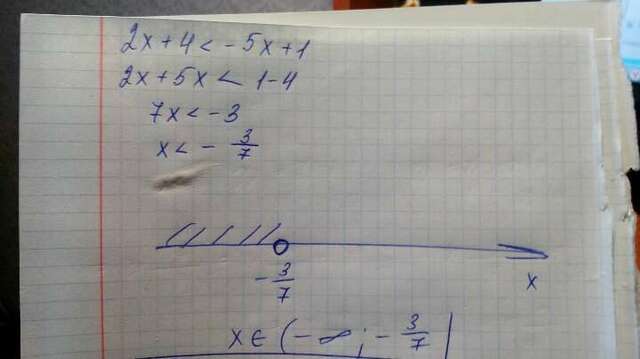 2x+4<-5x+1
2x+5x<1-4
7x<-3
x<-3/7
-3/7
x
x∈(-∞;-3/7)